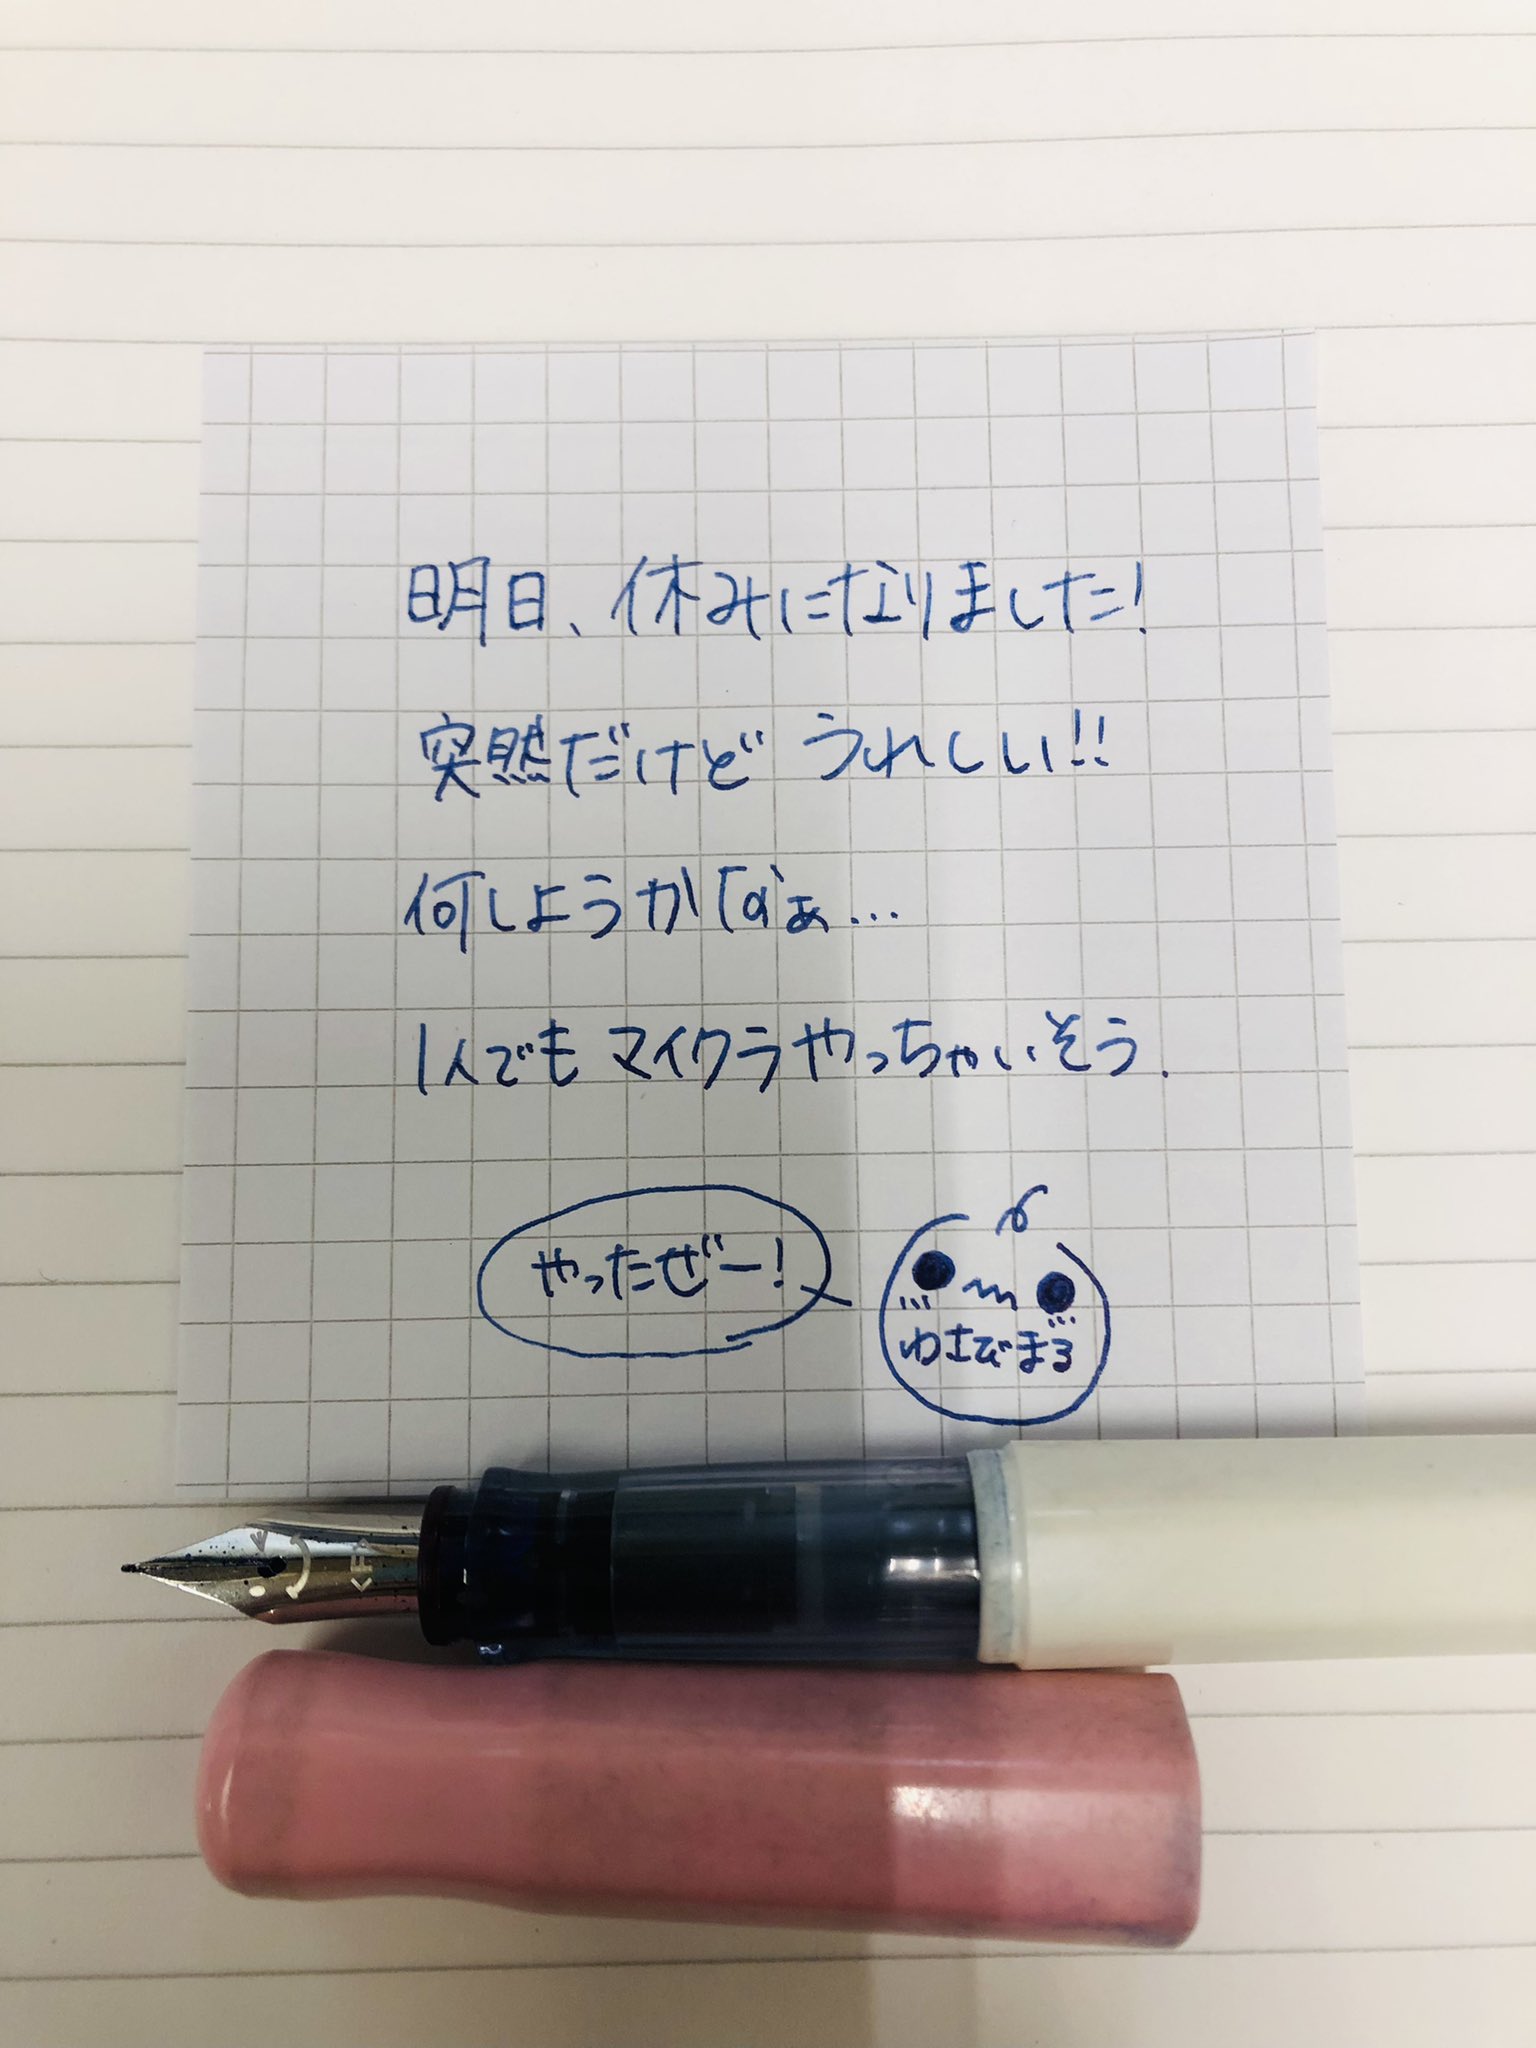 明日、休みになりました!
突然だけど うれしい!!
何しようかなぁ...
1人でも マイクラやっちゃいそう.
やったぜー!
わさびまる
<F>